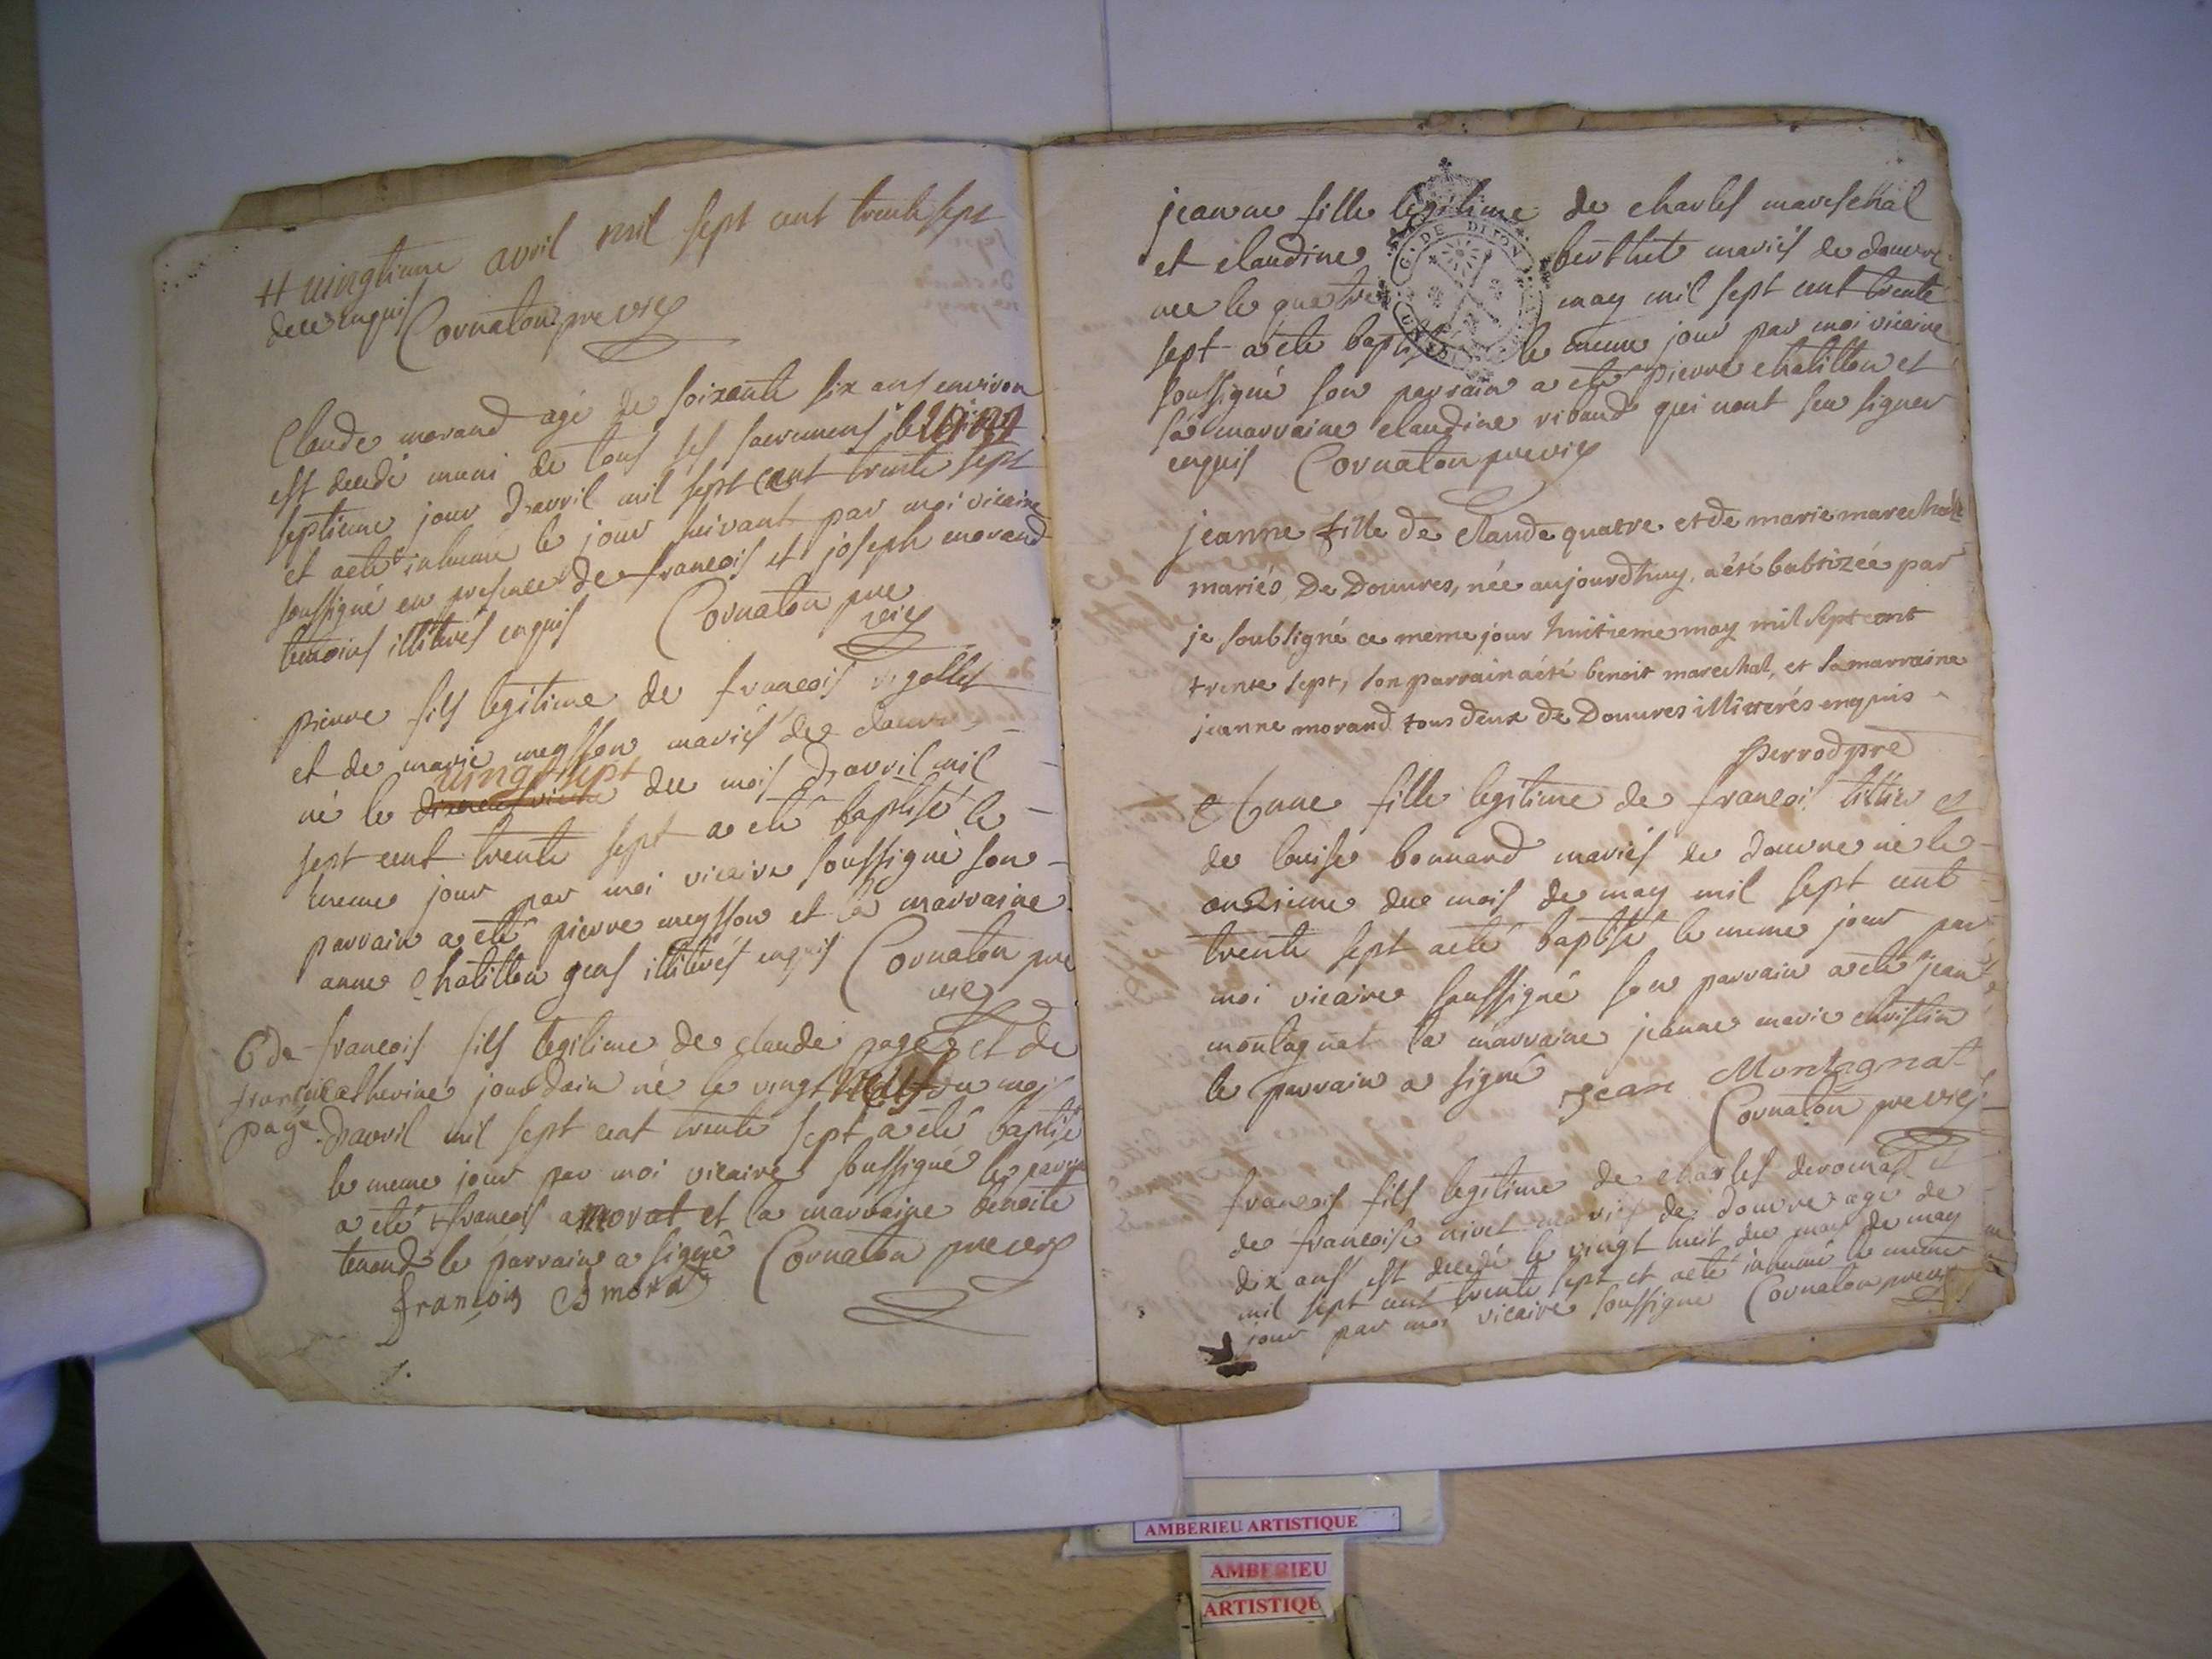 # vingtieme avril mil sept cent trente sept
de ce enquis Cornaton pre vic
Claude morand agé de soixante six ans environ
est decedé muni de tous ses sacremens le
septieme jour d'avril mil sept cent trente sept
et a eté inhumé le jour suivant par moi vicaire
soussigné en presence de francois et joseph morand
temoins illiterés enquis Cornaton pre
vic
pierre fils legitime de francois rigollet
et de marie meysson mariés de douvre
vingt sept
né le du mois d'avril mil
sept cent trente sept a eté baptisé le
meme jour par moi vicaire soussigné son
parrain a eté pierre meysson et la marraine
anne chatillon gens illiterés enquis Cornaton pre
vic
B de francois fils legitime de claude page et de
francois catherine jourdain né le vingt neuf du mois
page d'avril mil sept cent trente sept a eté baptisé
le meme jour par moi vicaire soussigné le parrain
a eté francois amorat et la marraine benoite
tenand le parrain a signé Cornaton pre vic
françois Amorat
jeanne fille legitime de charles mareschal
et claudine berthet mariés de douvre
nee le quatre may mil sept cent trente
sept a eté baptisée le meme jour par moi vicaire
soussigné son parrain a eté pierre chatillon et
la marraine claudine ribaud qui n'ont seu signer
enquis Cornaton pre vic
G. DE DIJON
jeanne fille de Claude quatre et de marie marechal
mariés De Douvres, née aujourdhuy, a été babtizée par
je soubsigné ce meme jour huitieme may mil sept cent
trente sept, son parrain a été benoit marechal, et sa marraine
jeanne morand tous deux de Douvres illitterés enquis
Perrod pre
B anne fille legitime de francois tillier et
de louise bonnard mariés de douvre né le
onzieme du mois de may mil sept cent
trente sept a eté baptisé le meme jour par
moi vicaire soussigné son parrain a eté jean
montagnat la marraine jeanne marie christin
le parrain a signé Jean Montagnat
Cornaton pre vic
francois fils legitime de charles et
de francoise nivet mariés de douvre agé de
dix ans est decedé le vingt huit du mois de may
mil sept cent trente sept et a eté inhumé le meme
jour par moi vicaire soussigné Cornaton pre vic
AMBERIEU ARTISTIQUE
AMBERIEU
ARTISTIQUE